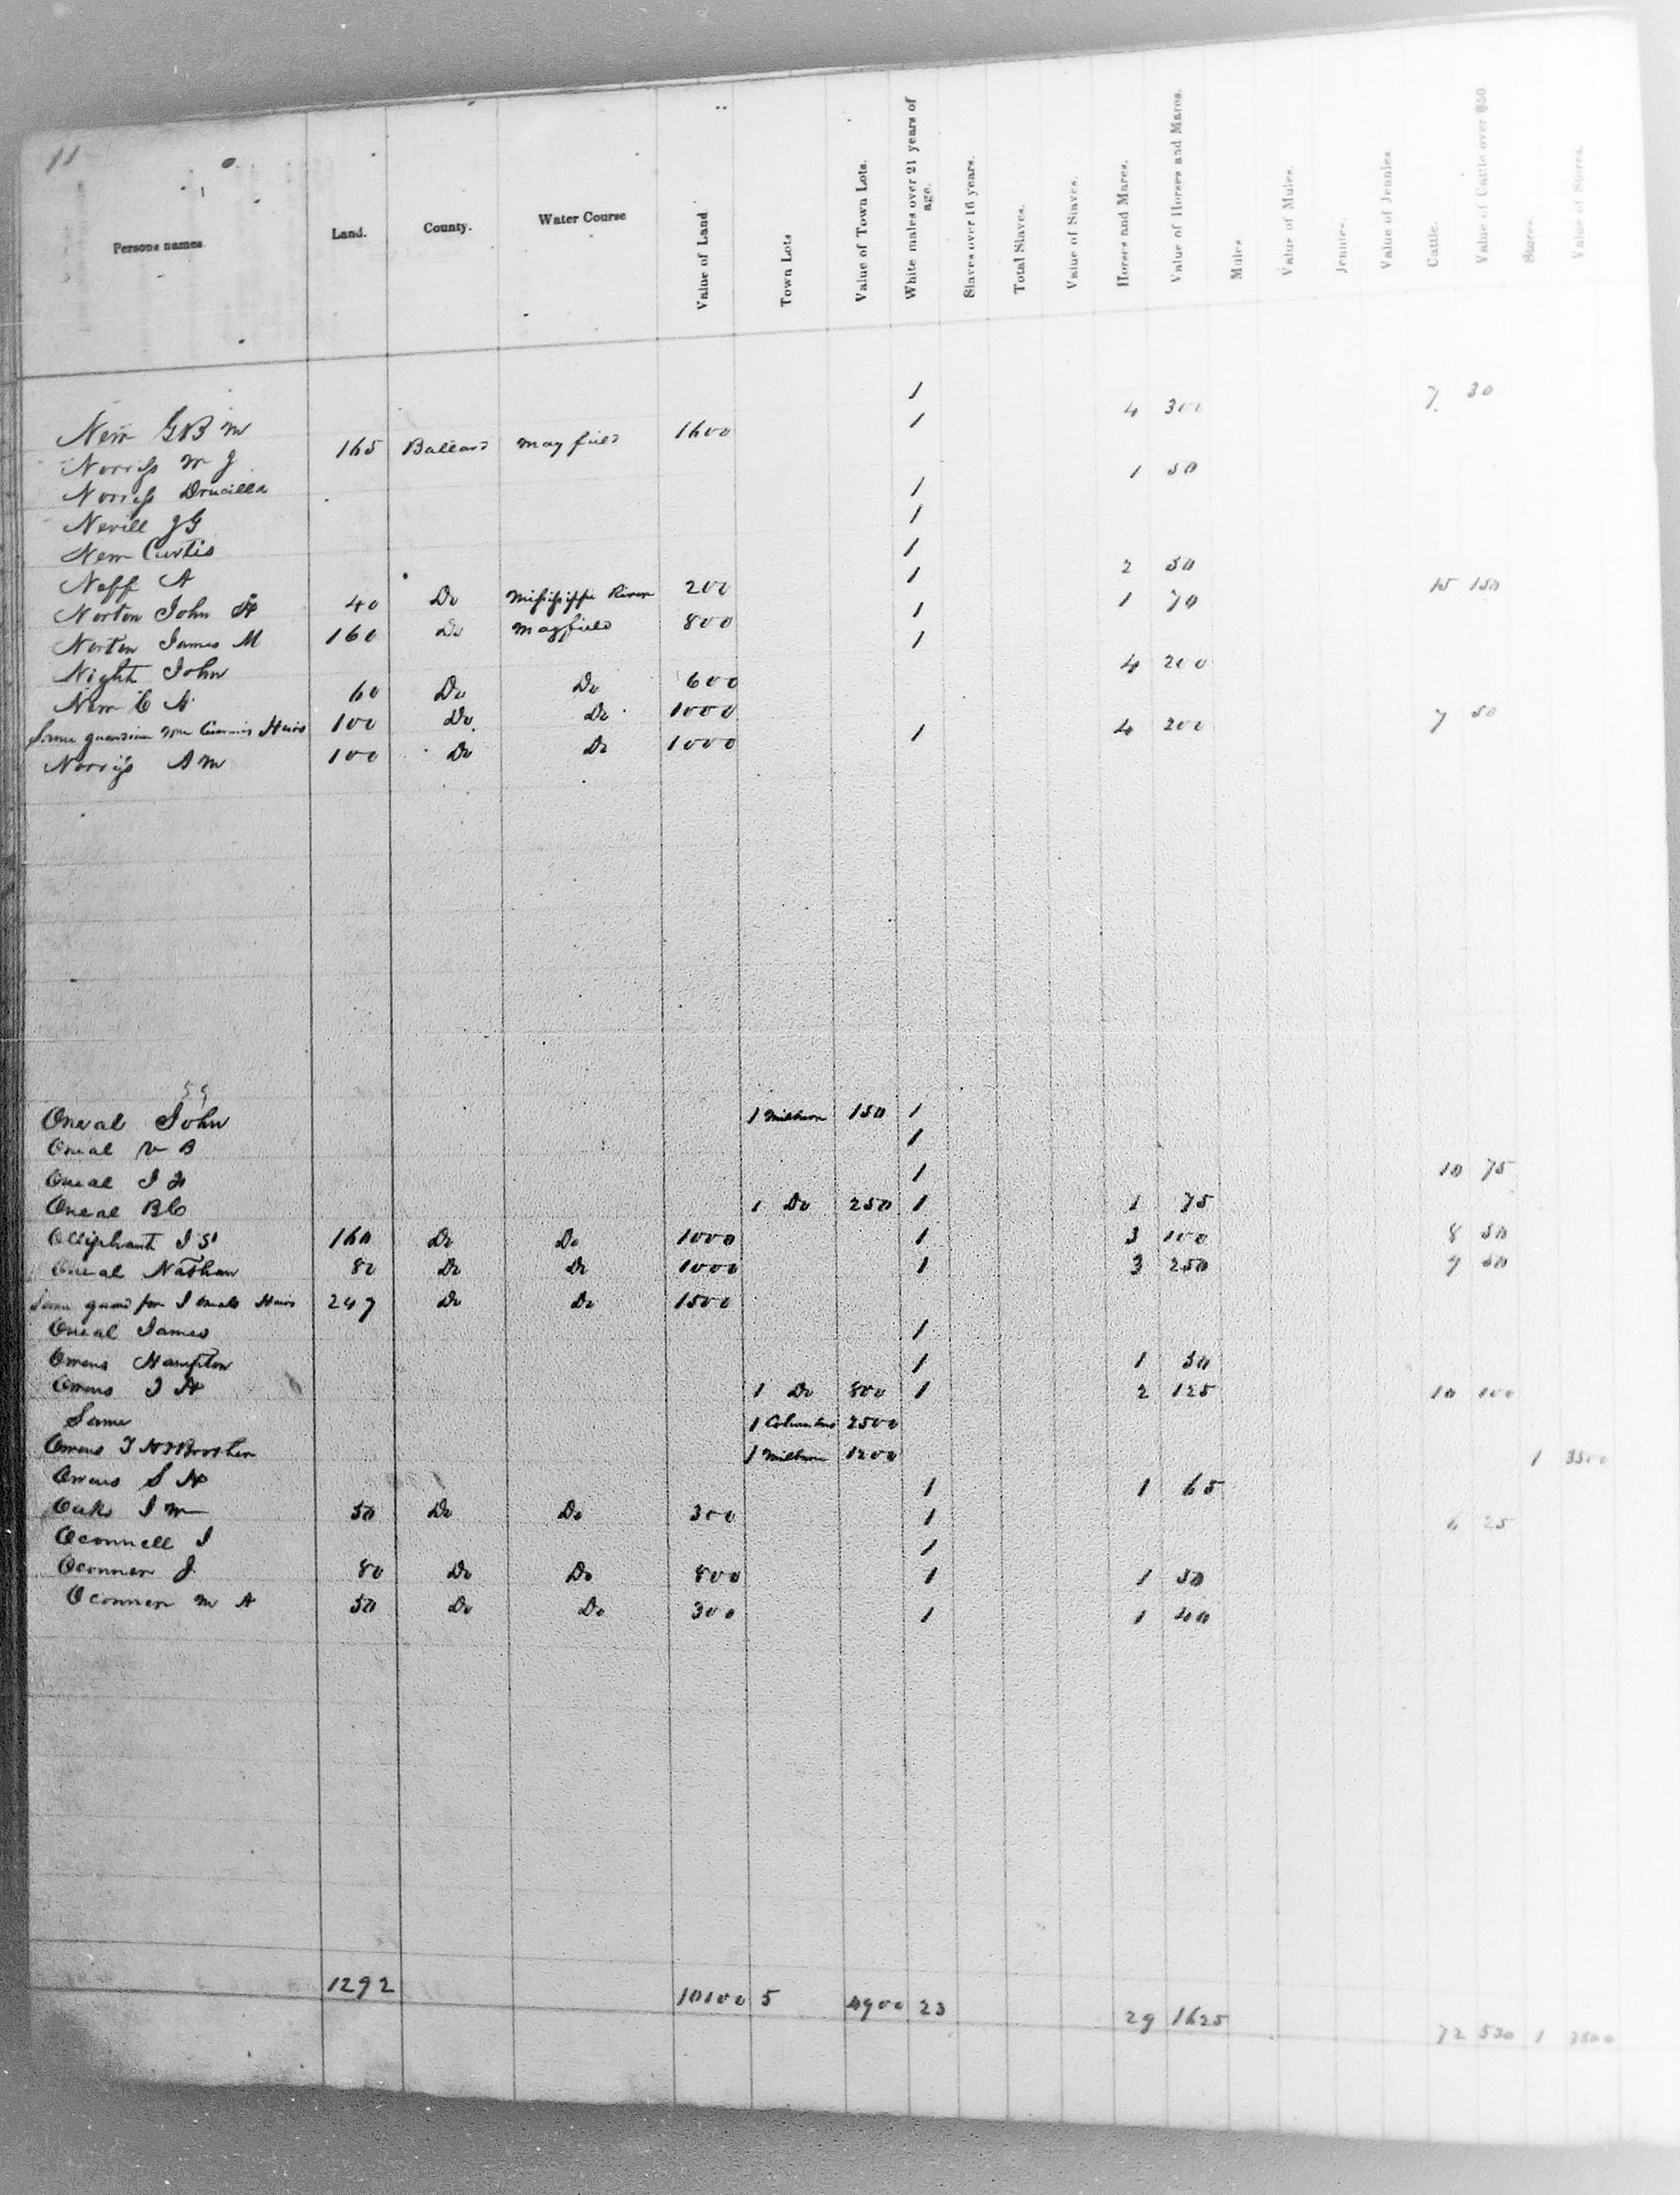 11
Persons names Land. County. Water Course Value of Land Town Lots Value of Town Lots. White males over 21 years of age. Slaves over 16 years. Total Slaves. Value of Slaves. Horses and Mares. Value of Horses and Mares. Mules Value of Mules. Jennies. Value of Jennies. Cattle. Value of Cattle over $50. Stores. Value of Stores.
G B M 1 4 300 7 30
Norriss M J 165 Ballard Mayfield 1600 1
Norriss Drucilla 1 50
Nevill J G 1
Curtis 1
Neff A 1 2 50
Norton John 40 Do Mississippi River 200 1 1 70 15 150
Norton James M 160 Do Mayfield 800 1
Night John 1 4 200
60 Do Do 600
Same guardian Heirs 100 Do Do 1000
Norriss A M 100 Do Do 1000 1 4 200 7 50
59
Oneal John 1 Milburn 150 1
Oneal B 1
Oneal J 1 10 75
Oneal B C 1 Do 250 1 1 75
Olliphant J S 160 Do Do 1000 1 3 100 8 50
Oneal Nathan 80 Do Do 1000 1 3 250 9 50
Same guard for J Oneals Heirs 247 Do Do 1500
Oneal James 1
Owens Hampton 1 1 50
Owens J H 1 Do 800 1 2 125 10 100
Same 1 Columbus 2500
Owens J H & Brother 1 Milburn 1200 1 3500
Owens S H 1 1 65
Oaks J M 50 Do Do 300 1 6 25
Oconnell J 1
Oconner J. 80 Do Do 800 1 1 50
Oconner M A 50 Do Do 300 1 1 40
1292 10100 5 4900 23 29 1625 72 530 1 3500